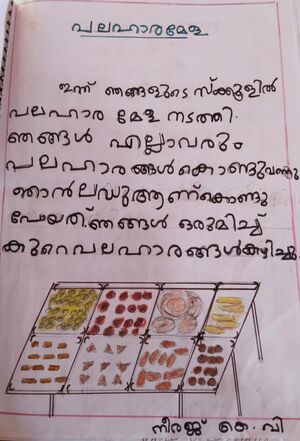 പലഹാരമേള
ഇന്ന് ഞങ്ങളുടെ സ്ക്കൂളിൽ
പലഹാര മേള നടത്തി.
ഞങ്ങൾ എല്ലാവരും
പലഹാരങ്ങൾകൊണ്ടുവന്നു
ഞാൻലഡുആണ്കൊണ്ടു
പോയത്.ഞങ്ങൾ ഒരുമിച്ച്
കുറെപലഹാരങ്ങൾകഴിച്ചു.
നീരജ് കെ. വി